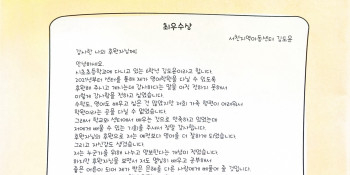 최우수상
서천지역아동센터 김도윤
감사한 나의 후원자님께
안녕하세요.
시초초등학교에 다니고 있는 6학년 김도윤이라고 합니다.
2021년부터 센터를 통해 제가 영어학원을 다닐 수 있도록
후원해 주시고 계시는데 감사하다는 말을 아직 전하지 못해서
이렇게 감사함을 전하고 싶었습니다.
수학도, 영어도 배우고 싶은 건 많았지만 저희 가족 형편이 어려워서
학원이라는 곳을 다닐 수 없었습니다.
그래서 학교와 센터에서 배우는 것으로 만족하고 있었는데
저에게 배울 수 있는 기회를 주셔서 정말 감사합니다.
후원자님의 후원으로 저는 예전보다 영어를 더 잘하게 되었습니다.
그리고 자신감도 생겼습니다.
저는 누군가를 위해 나누고 양보한다는 개념이 적었습니다.
하지만 후원자님을 보면서 저도 열심히 배우고 공부해서
좋은 어른이 되어 제가 받은 은혜를 다른 사람에게 베풀어 줄 겁니다.